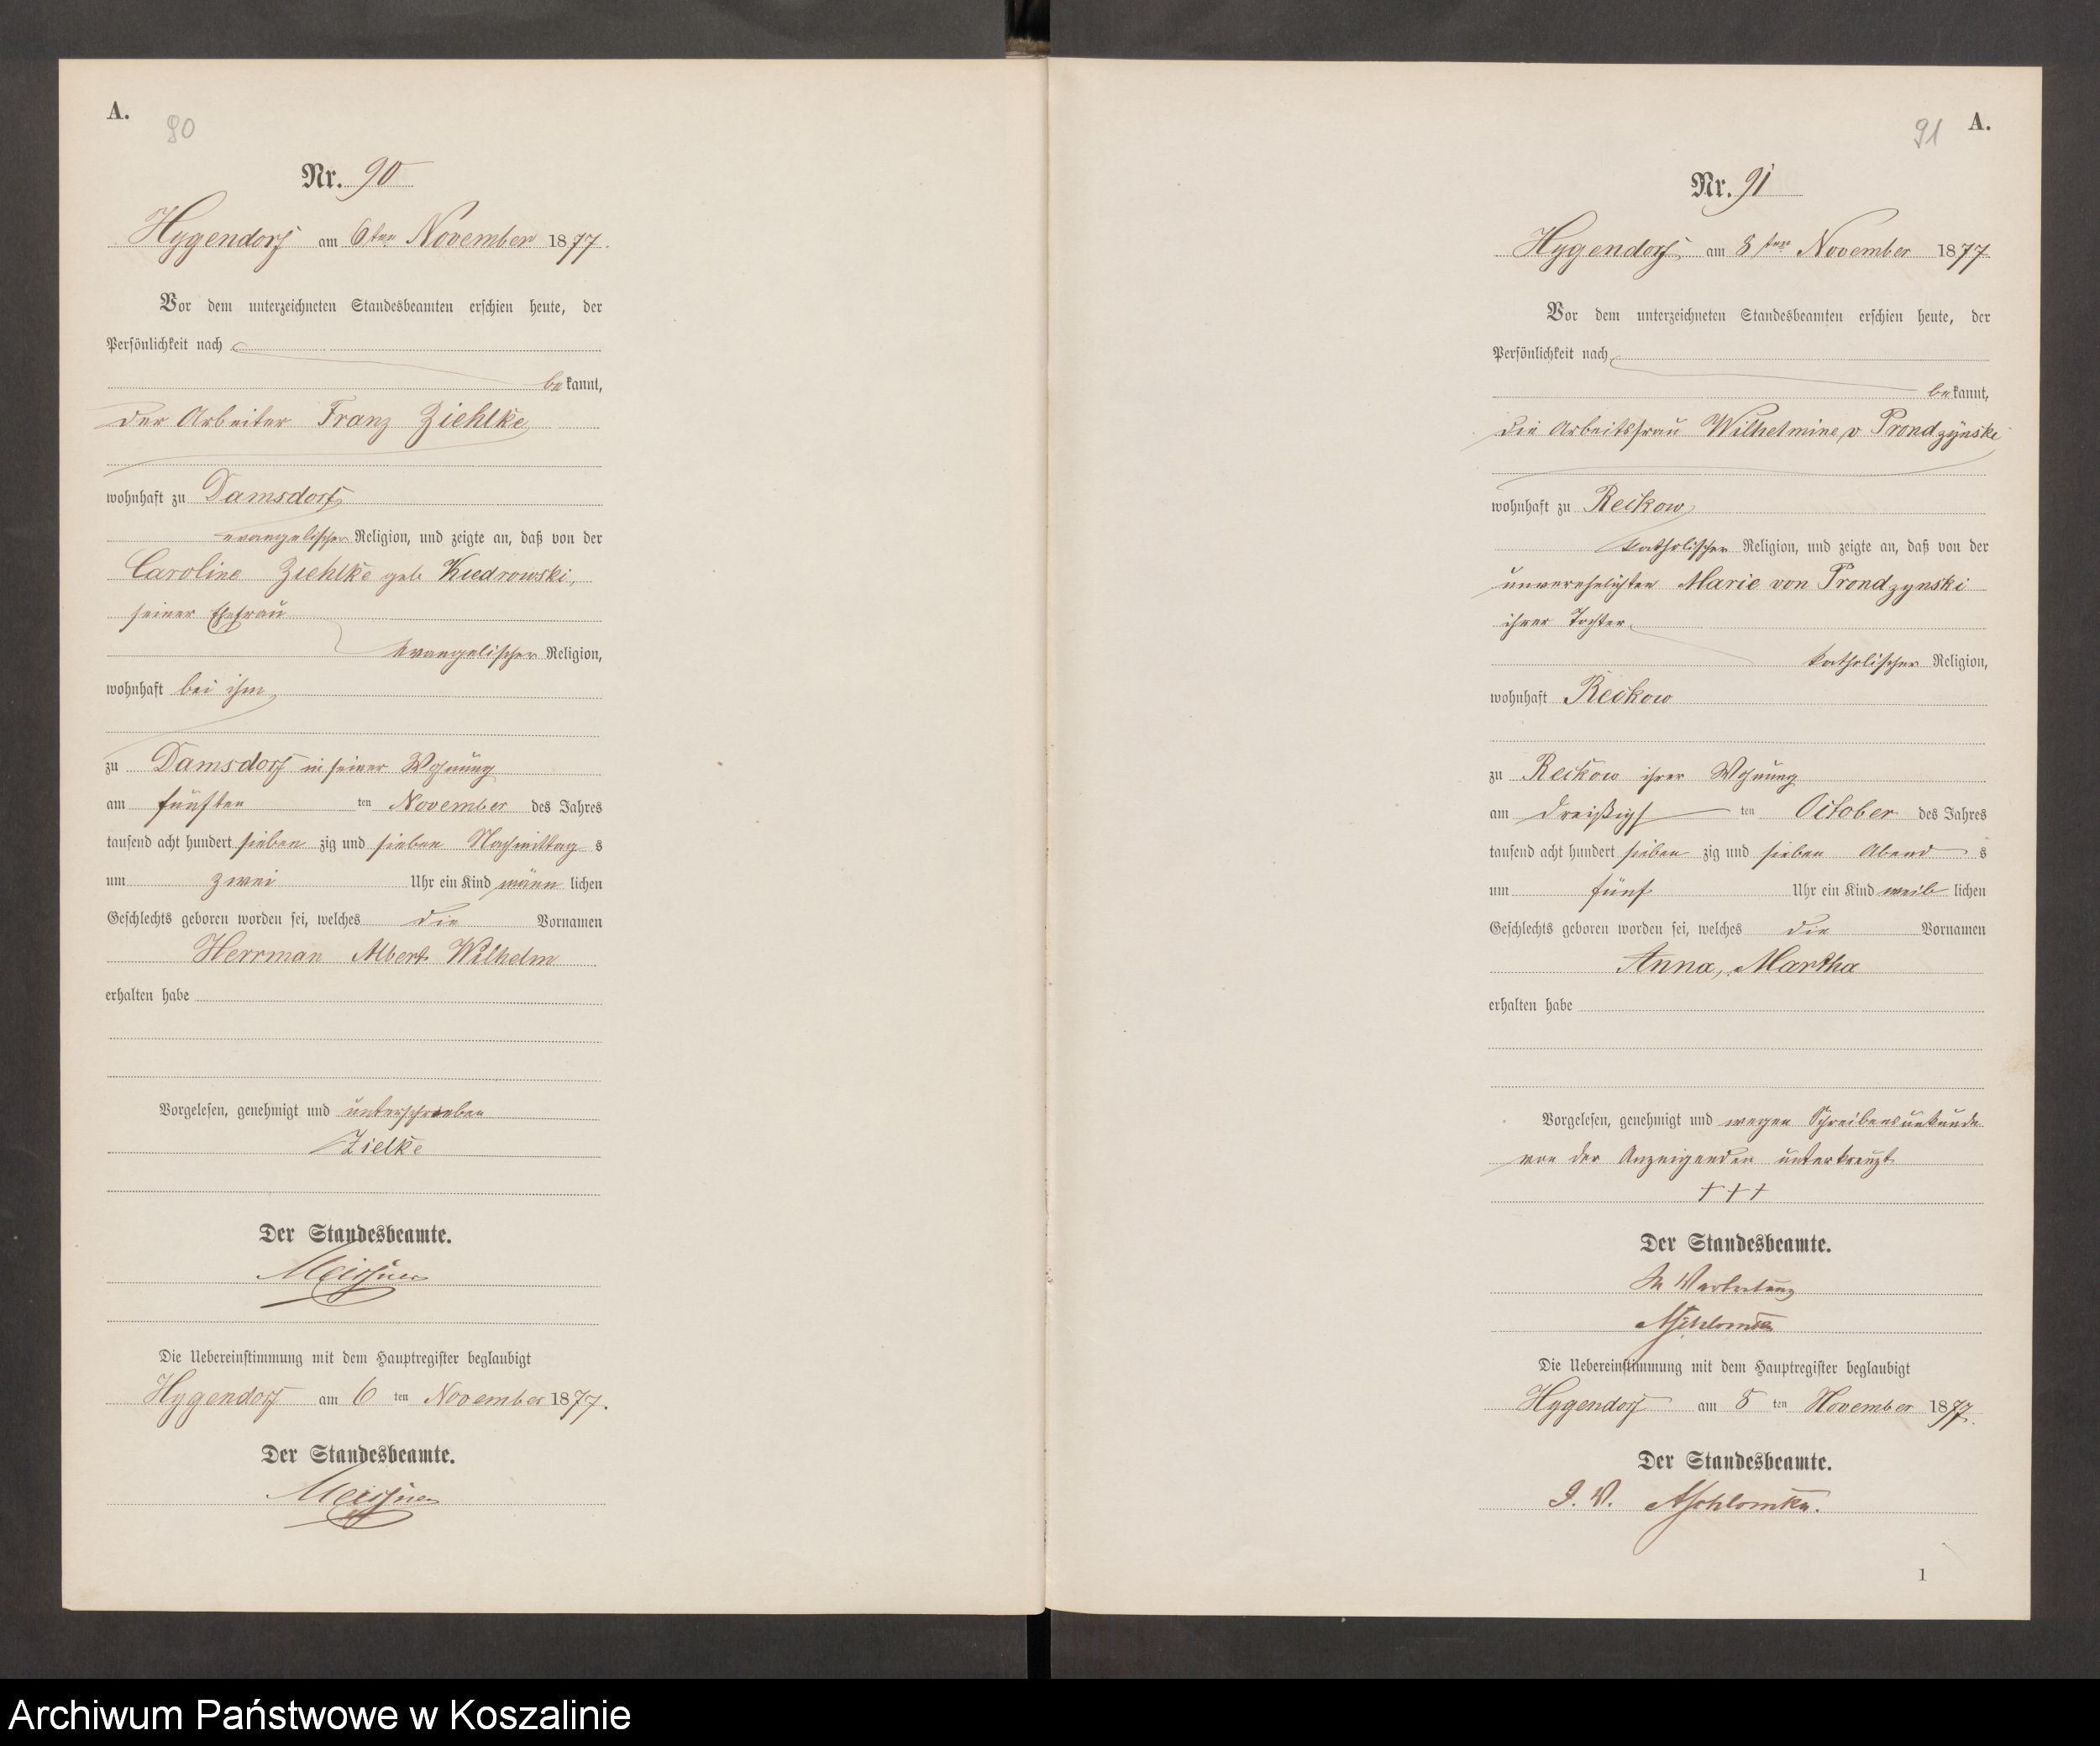 A.
90
Nr. 90
Hygendorf am 6ten November 1877.
Vor dem unterzeichneten Standesbeamten erschien heute, der
Persönlichkeit nach
bekannt,
der Arbeiter Franz Ziehlke
wohnhaft zu Damsdorf
evangelischer Religion, und zeigte an, daß von der
Caroline Ziehlke geb. Kiedrowski,
seiner Ehefrau
evangelischer Religion,
wohnhaft bei ihm
zu Damsdorf in seiner Wohnung
am fünften ten November des Jahres
tausend acht hundert sieben zig und sieben Nachmittag s
um zwei Uhr ein Kind männ lichen
Geschlechts geboren worden sei, welches die Vornamen
Herrman Albert Wilhelm
erhalten habe
Vorgelesen, genehmigt und unterschrieben
Zielke
Der Standesbeamte.
Die Uebereinstimmung mit dem Hauptregister beglaubigt
Hygendorf am 6 ten November 1877.
Der Standesbeamte.
91 A.
Nr. 91
Hygendorf am 8ten November 1877
Vor dem unterzeichneten Standesbeamten erschien heute, der
Persönlichkeit nach
bekannt,
die Arbeitsfrau Wilhelmine v Prondzynski
wohnhaft zu Reckow
katholischer Religion, und zeigte an, daß von der
unverehelichten Marie von Prondzynski
ihrer Tochter
katholischer Religion,
wohnhaft Reckow
zu Reckow ihrer Wohnung
am dreißigs ten October des Jahres
tausend acht hundert sieben zig und sieben Abend s
um fünf Uhr ein Kind weib lichen
Geschlechts geboren worden sei, welches die Vornamen
Anna, Martha
erhalten habe
Vorgelesen, genehmigt und wegen Schreibensunkunde
von der Anzeigenden unterkreuzt
+++
Der Standesbeamte.
In Vertretung
Die Uebereinstimmung mit dem Hauptregister beglaubigt
Hygendorf am 8 ten November 1877.
Der Standesbeamte.
I. V.
1
Archiwum Państwowe w Koszalinie